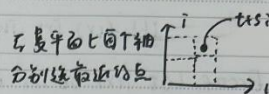 在复平面上每个轴
分别选最近的点
i
t+si